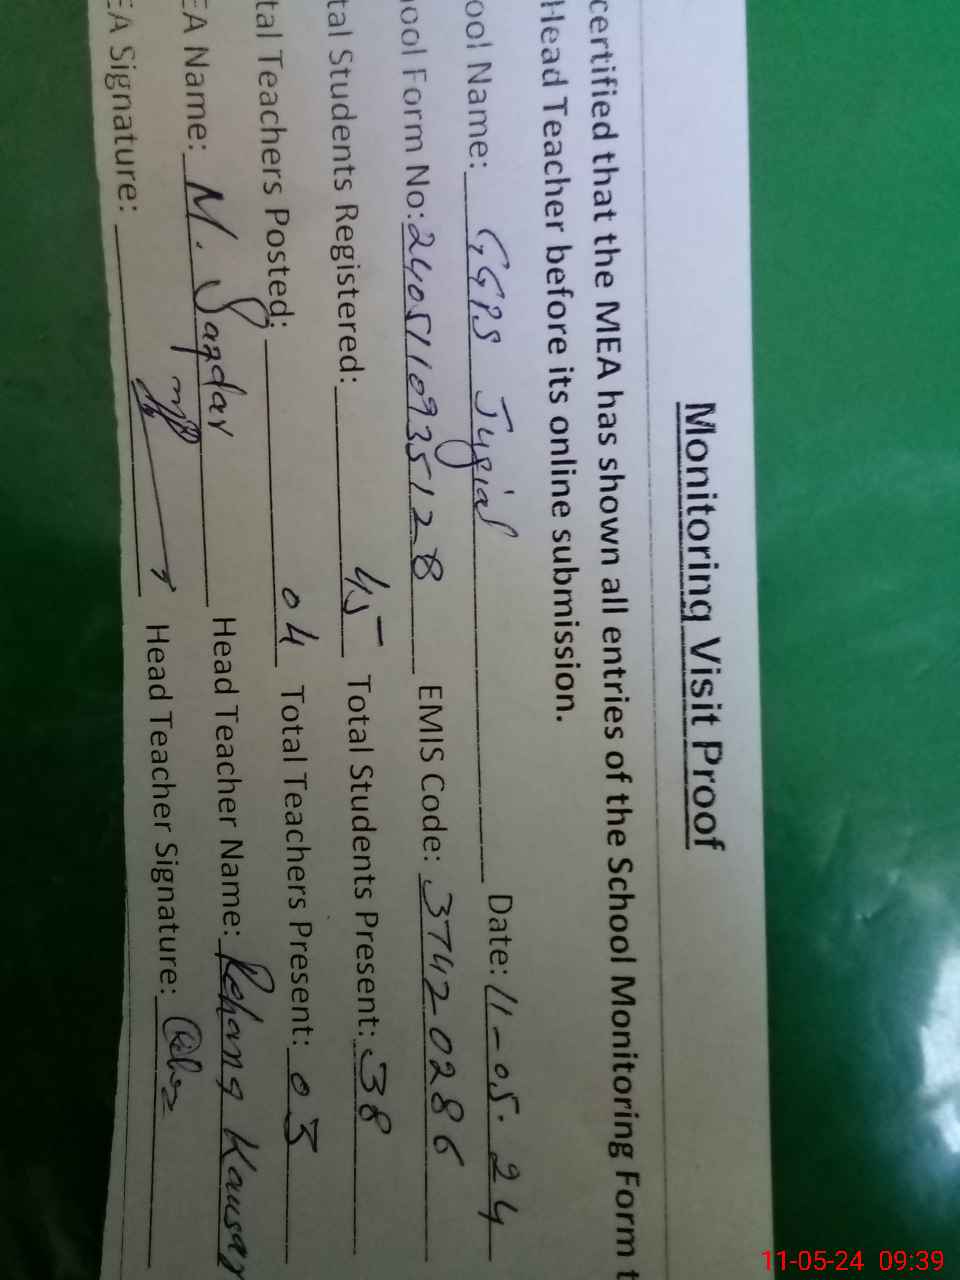 Monitoring Visit Proof
certified that the MEA has shown all entries of the School Monitoring Form t
Head Teacher before its online submission.
ool Name: GGPS Jygial Date: 11-05-24
ool Form No: 2405110935128 EMIS Code: 37420286
tal Students Registered: 45 Total Students Present: 38
tal Teachers Posted: 04 Total Teachers Present: 03
EA Name: M. Sardar Head Teacher Name: Rehana Kausar
EA Signature: Head Teacher Signature:
11-05-24 09:39